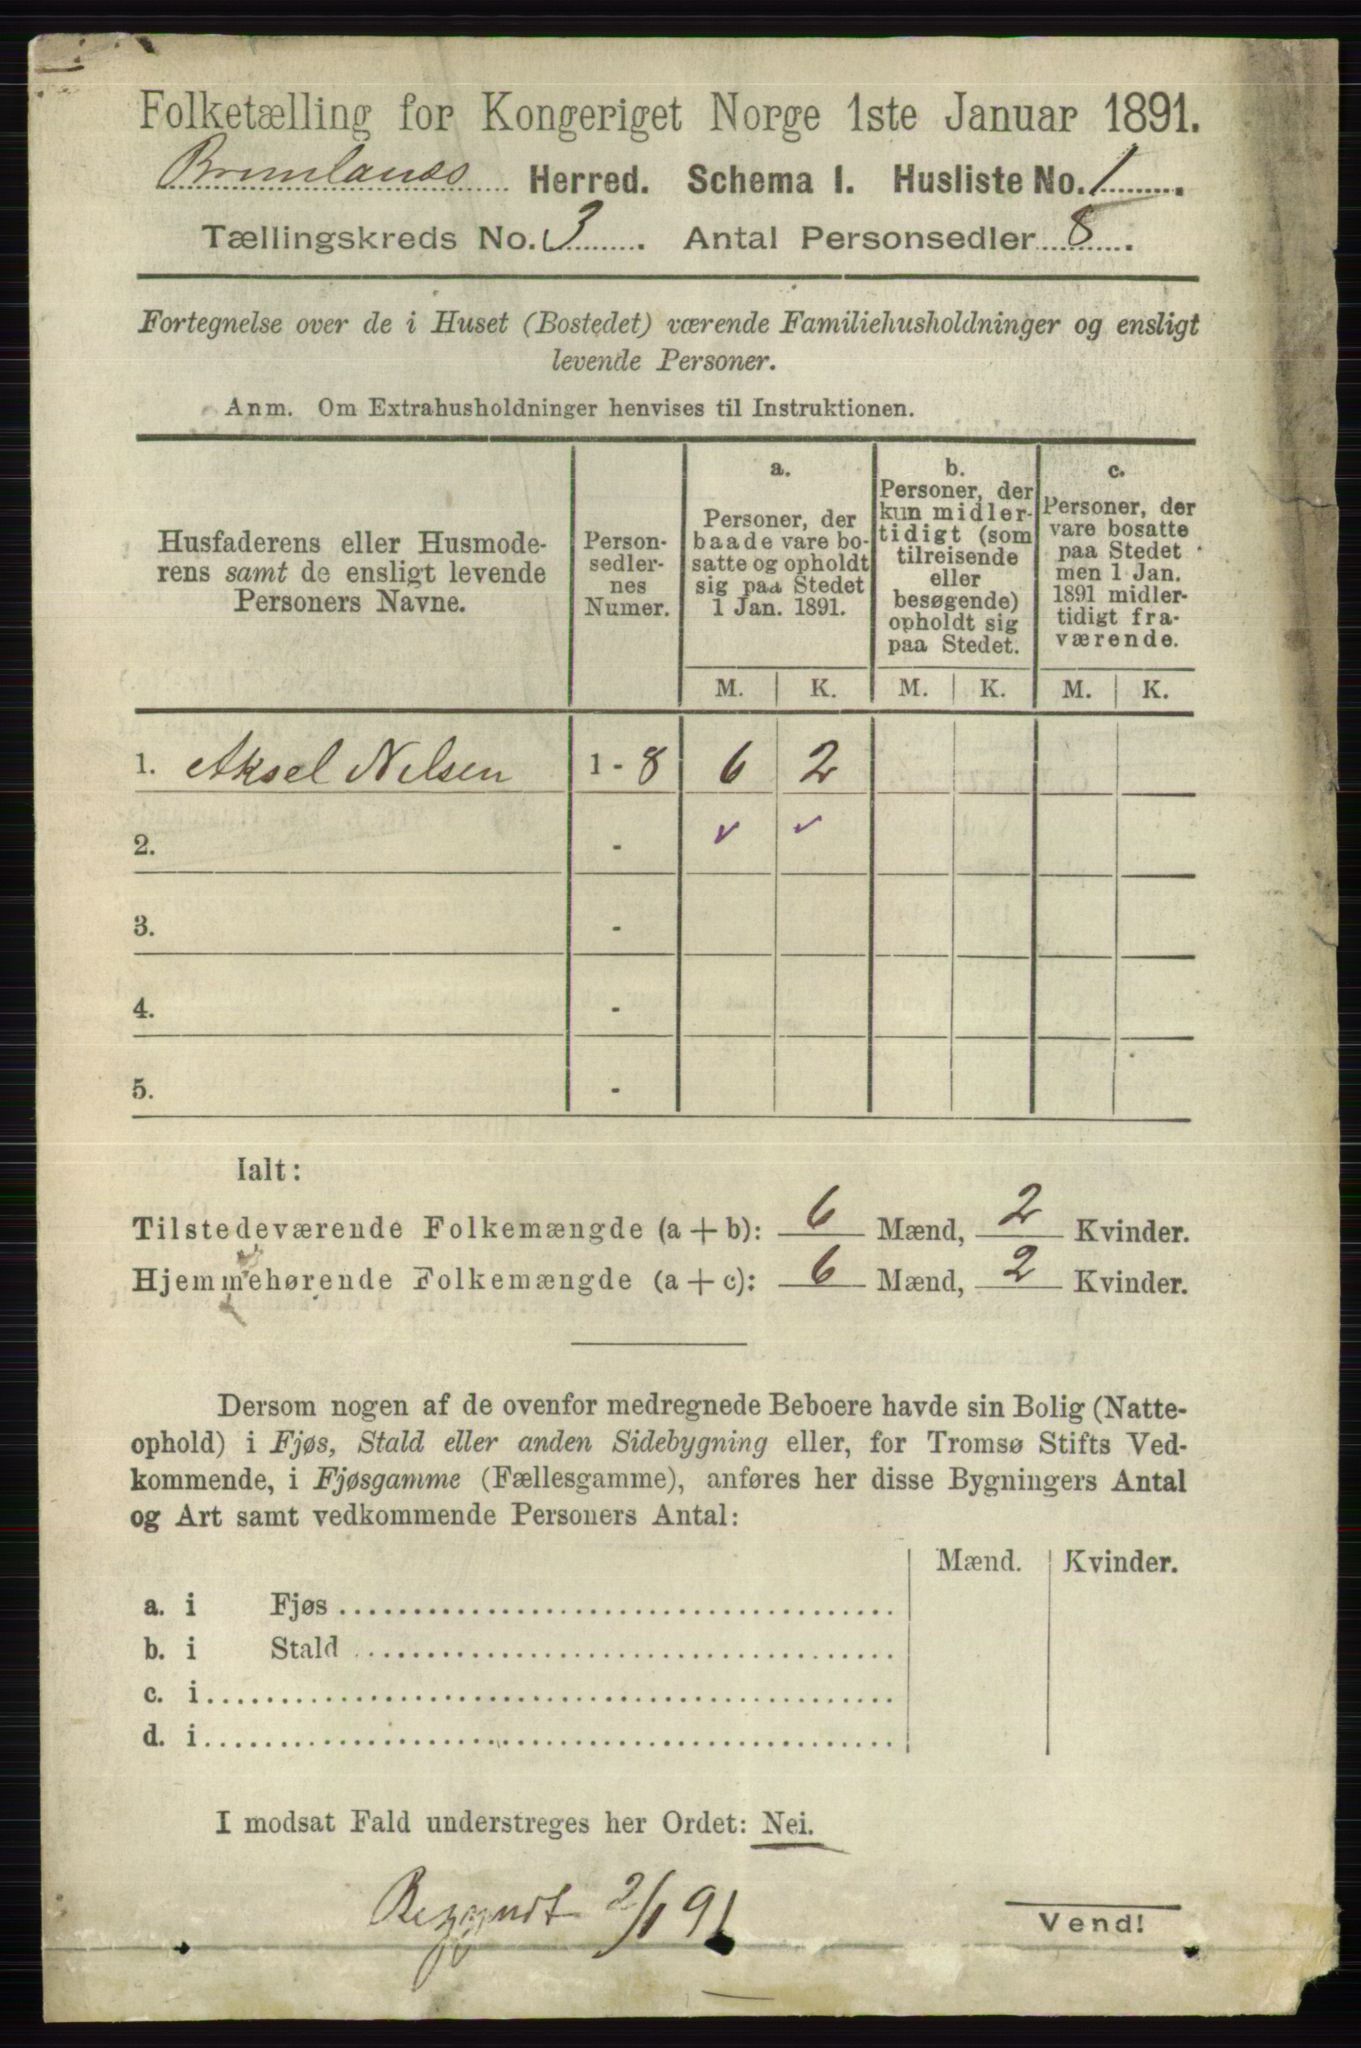 Folketælling for Kongeriget Norge 1ste Januar 1891.
Brunlanæs Herred. Schema I. Husliste No. 1.
Tællingskreds No. 3. Antal Personsedler 8.
Fortegnelse over de i Huset (Bostedet) værende Familiehusholdninger og ensligt
levende Personer.
Anm. Om Extrahusholdninger henvises til Instruktionen.
Husfaderens eller Husmode-
rens samt de ensligt levende
Personers Navne.
Person-
sedler-
nes
Numer.
a.
Personer, der
baade vare bo-
satte og opholdt
sig paa Stedet
1 Jan. 1891.
b.
Personer, der
kun midler-
tidigt (som
tilreisende
eller
besøgende)
opholdt sig
paa Stedet.
c.
Personer, der
vare bosatte
paa Stedet
men 1 Jan.
1891 midler-
tidigt fra-
værende.
M. K. M. K. M. K.
1. Aksel Nilsen 1-8 6 2
2. - ✓ ✓
3. -
4. -
5. -
Ialt:
Tilstedeværende Folkemængde (a + b): 6 Mænd, 2 Kvinder.
Hjemmehørende Folkemængde (a + c): 6 Mænd, 2 Kvinder.
Dersom nogen af de ovenfor medregnede Beboere havde sin Bolig (Natte-
ophold) i Fjøs, Stald eller anden Sidebygning eller, for Tromsø Stifts Ved-
kommende, i Fjøsgamme (Fællesgamme), anføres her disse Bygningers Antal
og Art samt vedkommende Personers Antal:
Mænd. Kvinder.
a. i Fjøs
b. i Stald
c. i
d. i
I modsat Fald understreges her Ordet: Nei.
2/1 91
Vend!